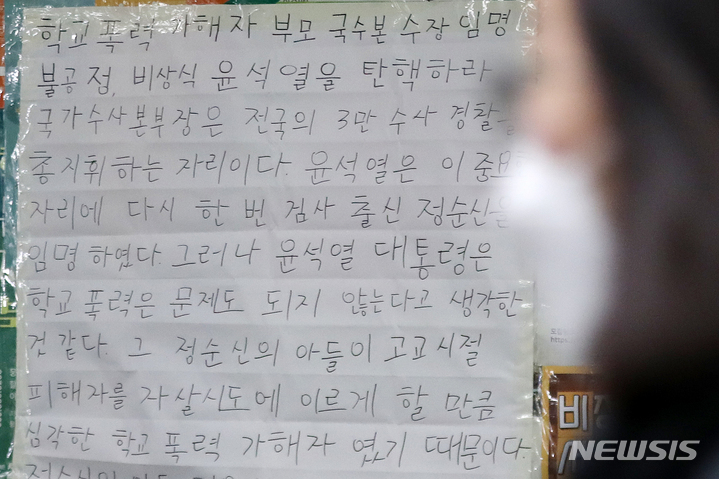 학교 폭력 가해자 부모 국수본 수장 임명
불공정, 비상식 윤석열을 탄핵하라
국가수사본부장은 전국의 3만 수사 경찰을
총지휘하는 자리이다. 윤석열은 이 중요
자리에 다시 한 번 검사 출신 정순신을
임명 하였다. 그러나 윤석열 대통령은
학교 폭력은 문제도 되지 않는다고 생각한
것 같다. 그 정순신의 아들이 고교시절
피해자를 자살시도에 이르게 할 만큼
심각한 학교 폭력 가해자 였기 때문이다.
NEWSIS